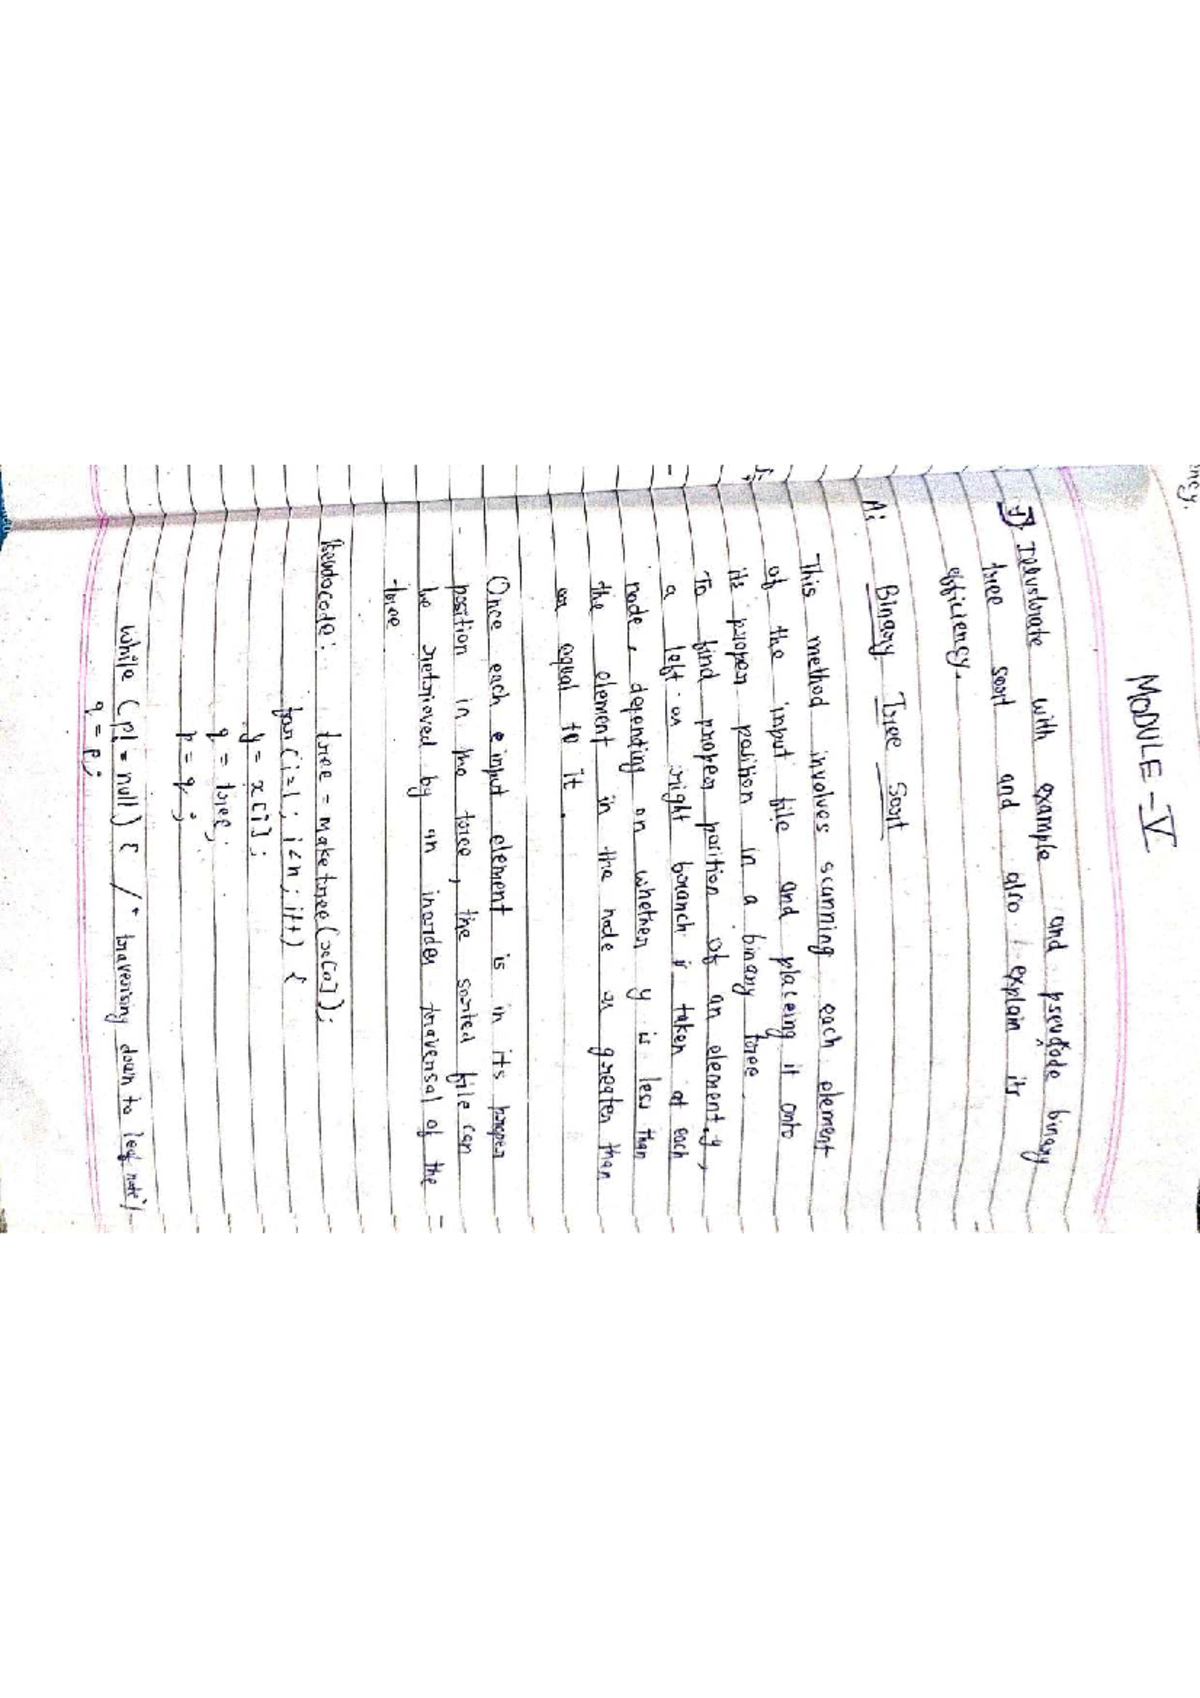 MODULE - V
1) Illustrate with example and pseudode binary
tree sort and also explain its
efficiency.
A: Binary Tree Sort
This method involves scanning each element
of the input file and placeing it onto
its proper position in a binary tree.
To find proper position of an element, y,
a left or right branch is taken at each
node, depending on whether y is less than
the element in the node or greater than
or equal to it.
Once each input element is in its proper
position in the tree, the sorted file can
be retrieved by an inorder traversal of the
tree
Pseudocode: tree = maketree(x[0]);
for(i=1; i<n; i++) {
y = x[i];
q = tree;
p = q;
while (p != null) { /* traversing down to leaf note*/
q = p;